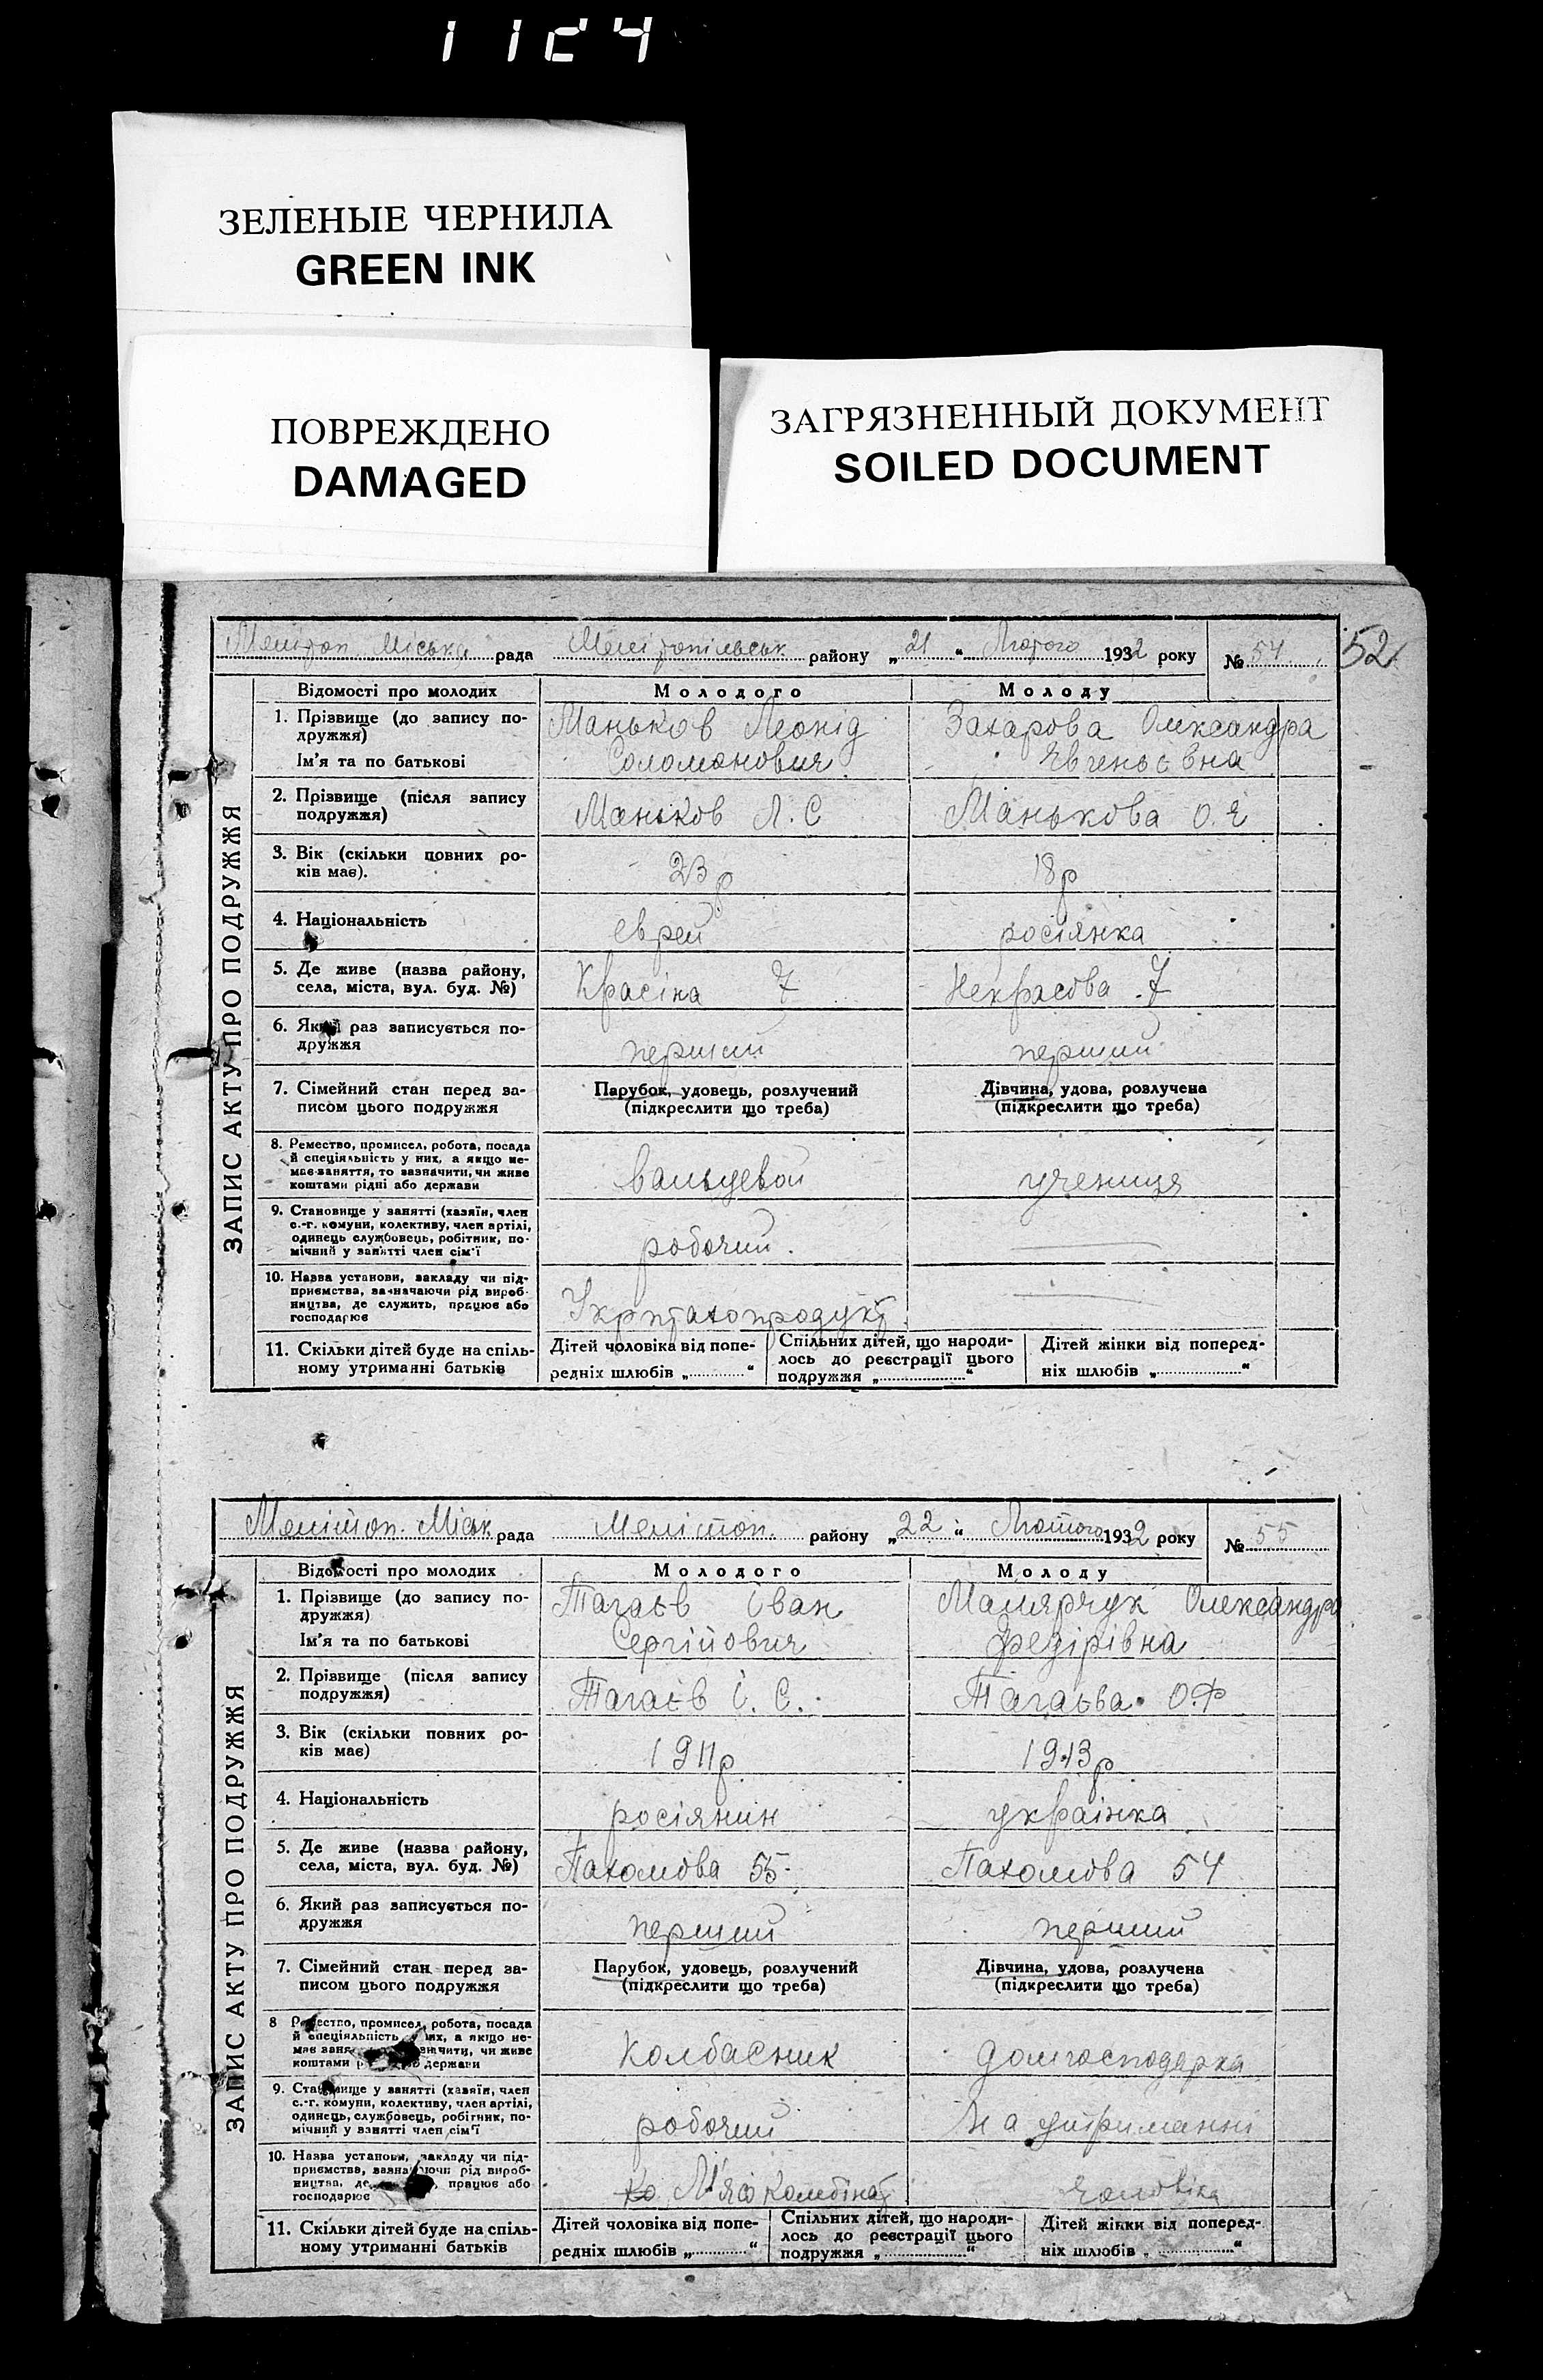 1124
ЗЕЛЕНЫЕ ЧЕРНИЛА
GREEN INK
ПОВРЕЖДЕНО
DAMAGED
ЗАГРЯЗНЕННЫЙ ДОКУМЕНТ
SOILED DOCUMENT
Меліtoп Міська рада Мелітопільськ району „21“ Лютого 1932 року № 54 52
ЗАПИС АКТУ ПРО ПОДРУЖЖЯ
Відомості про молодих Молодого Молоду
1. Прізвище (до запису по- Маньков Леонід Захарова Олександра
дружжя)
Ім'я та по батькові Соломонович Євгеньєвна
2. Прізвище (після запису Маньков Л. С Манькова О. Є
подружжя)
3. Вік (скільки повних ро- 23р 18р
ків має).
4. Національність еврей росіянка
5. Де живе (назва району, Красіна 7 Некрасова 7
села, міста, вул. буд. №)
6. Який раз записується по- перший перший
дружжя
7. Сімейний стан перед за- Парубок, удовець, розлучений Дівчина, удова, розлучена
писом цього подружжя (підкреслити що треба) (підкреслити що треба)
8. Ремество, промисел, робота, посада
й спеціяльність у них, а якщо не-
має заняття, то зазначити, чи живе вальцевой учениця
коштами рідні або держави
9. Становище у занятті (хазяїн, член
с.-г. комуни, колективу, член артілі,
одинець службовець, робітник, по- робочий.
мічний у занятті член сім'ї
10. Назва установи, закладу чи під-
приємства, зазначаючи рід вироб-
ництва, де служить, працює або Укрптахопродукт
господарює
11. Скільки дітей буде на спіль- Дітей чоловіка від попе- Спільних дітей, що народи- Дітей жінки від поперед-
ному утриманні батьків редніх шлюбів „ “ лось до реєстрації цього ніх шлюбів „ “
подружжя „ “
Меліtoп. Міськ рада Мелітоп. району „22“ Лютого 1932 року № 55
ЗАПИС АКТУ ПРО ПОДРУЖЖЯ
Відомості про молодих Молодого Молоду
1. Прізвище (до запису по- Тагаєв Іван Малярчук Олександра
дружжя)
Ім'я та по батькові Сергійович Федірівна
2. Прізвище (після запису Тагаєв І. С. Тагаєва О.Ф
подружжя)
3. Вік (скільки повних ро- 1911р 1913р
ків має)
4. Національність росіянин українка
5. Де живе (назва району, Пахомова 55 Пахомова 54
села, міста, вул. буд. №)
6. Який раз записується по- перший перший
дружжя
7. Сімейний стан перед за- Парубок, удовець, розлучений Дівчина, удова, розлучена
писом цього подружжя (підкреслити що треба) (підкреслити що треба)
8 промисел, робота, посада
й спеціяльність а якщо не-
має чи живе Колбасник Домгосподарка
коштами держави
9. Становище у занятті (хазяїн, член
с.-г. комуни, колективу, член артілі,
одинець, службовець, робітник, по- робочий На утриманні
мічний у занятті член сім'ї
10. Назва установи, закладу чи під-
приємства, зазначаючи рід вироб-
ництва, працює або М'ясокомбінат чоловіка
господарює
11. Скільки дітей буде на спіль- Дітей чоловіка від попе- Спільних дітей, що народи- Дітей жінки від поперед-
ному утриманні батьків редніх шлюбів „ “ лось до реєстрації цього ніх шлюбів „ “
подружжя „ “